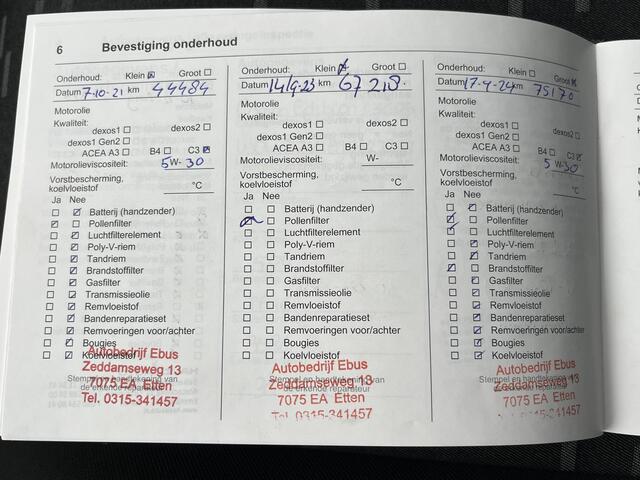 6 Bevestiging onderhoud
Onderhoud: Klein Groot
Datum 7-10-21 km 44484
Motorolie
Kwaliteit:
dexos1 dexos2
dexos1 Gen2
ACEA A3 B4 C3
Motorolieviscositeit: 5W-30
Vorstbescherming,
koelvloeistof °C
Ja Nee
Batterij (handzender)
Pollenfilter
Luchtfilterelement
Poly-V-riem
Tandriem
Brandstoffilter
Gasfilter
Transmissieolie
Remvloeistof
Bandenreparatieset
Remvoeringen voor/achter
Bougies
Koelvloeistof
Stempel en handtekening van
de erkende reparateur
Autobedrijf Ebus
Zeddamseweg 13
7075 EA Etten
Tel. 0315-341457
Onderhoud: Klein Groot
Datum 14/9-23 km 67218.
Motorolie
Kwaliteit:
dexos1 dexos2
dexos1 Gen2
ACEA A3 B4 C3
Motorolieviscositeit: W-
Vorstbescherming,
koelvloeistof °C
Ja Nee
Batterij (handzender)
Pollenfilter
Luchtfilterelement
Poly-V-riem
Tandriem
Brandstoffilter
Gasfilter
Transmissieolie
Remvloeistof
Bandenreparatieset
Remvoeringen voor/achter
Bougies
Koelvloeistof
Stempel en handtekening van
de erkende reparateur
Autobedrijf Ebus
Zeddamseweg 13
7075 EA Etten
Tel. 0315-341457
Onderhoud: Klein Groot
Datum 17-4-24 km 75170
Motorolie
Kwaliteit:
dexos1 dexos2
dexos1 Gen2
ACEA A3 B4 C3
Motorolieviscositeit: 5W-30
Vorstbescherming,
koelvloeistof °C
Ja Nee
Batterij (handzender)
Pollenfilter
Luchtfilterelement
Poly-V-riem
Tandriem
Brandstoffilter
Gasfilter
Transmissieolie
Remvloeistof
Bandenreparatieset
Remvoeringen voor/achter
Bougies
Koelvloeistof
Stempel en handtekening van
de erkende reparateur
Autobedrijf Ebus
Zeddamseweg 13
7075 EA Etten
Tel. 0315-341457